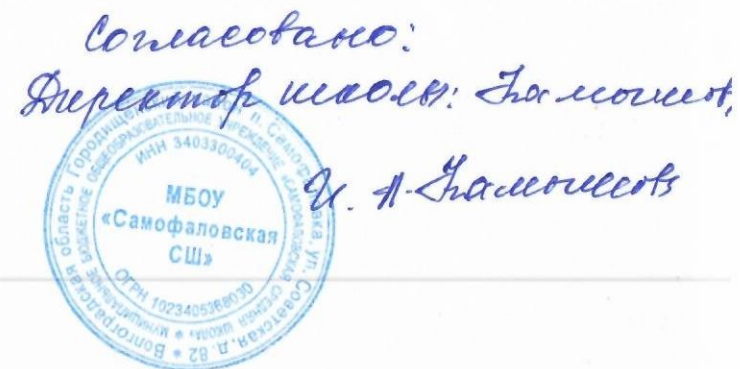 Согласовано:
Директор школы: Камышов,
И. А. Камышов
Волгоградская область Городищенский п. Самофаловка, ул. Советская, д. 82
МУНИЦИПАЛЬНОЕ БЮДЖЕТНОЕ ОБЩЕОБРАЗОВАТЕЛЬНОЕ УЧРЕЖДЕНИЕ «САМОФАЛОВСКАЯ СРЕДНЯЯ ШКОЛА»
ИНН 3403300404
МБОУ
«Самофаловская
СШ»
ОГРН 1023405368030